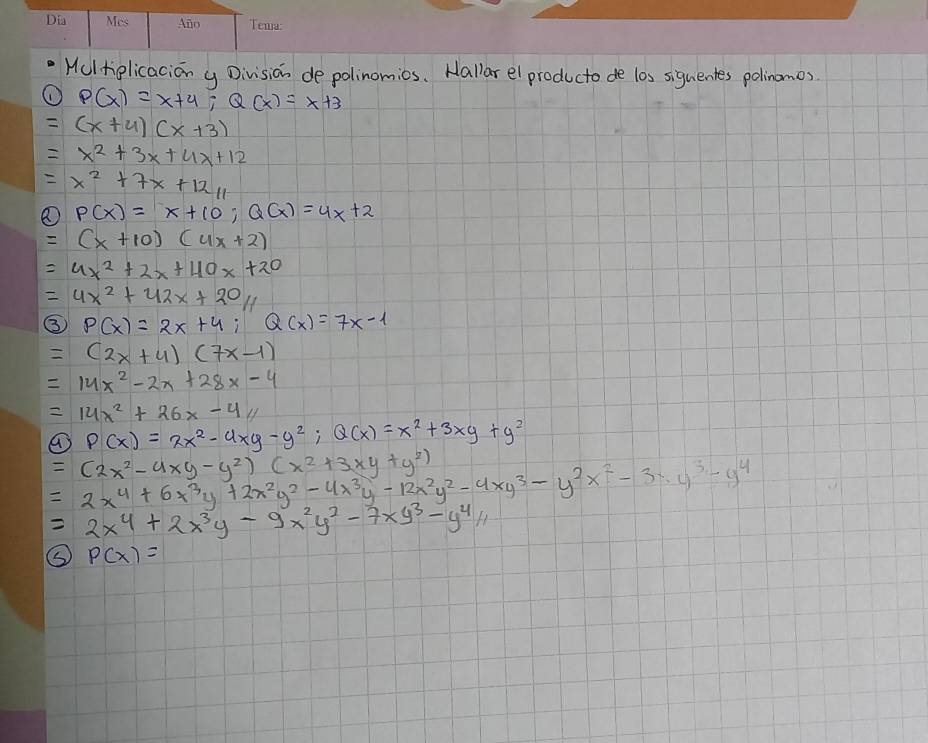 Día Mes Año Tema:
• Multiplicación y División de polinomios. Hallar el producto de los siguentes polinomos.
① P(x) = x+4 ; Q(x) = x+3
= (x+4) (x+3)
= x² + 3x + 4x + 12
= x² + 7x + 12 //
② P(x) = x+10 ; Q(x) = 4x+2
= (x+10) (4x+2)
= 4x² + 2x + 40x + 20
= 4x² + 42x + 20 //
③ P(x) = 2x+4 ; Q(x) = 7x-1
= (2x+4) (7x-1)
= 14x² - 2x + 28x - 4
= 14x² + 26x - 4 //
④ P(x) = 2x² - 4xy - y² ; Q(x) = x² + 3xy + y²
= (2x² - 4xy - y²) (x² + 3xy + y²)
= 2x⁴ + 6x³y + 2x²y² - 4x³y - 12x²y² - 4xy³ - y²x² - 3xy³ - y⁴
= 2x⁴ + 2x³y - 9x²y² - 7xy³ - y⁴ //
⑤ P(x) =